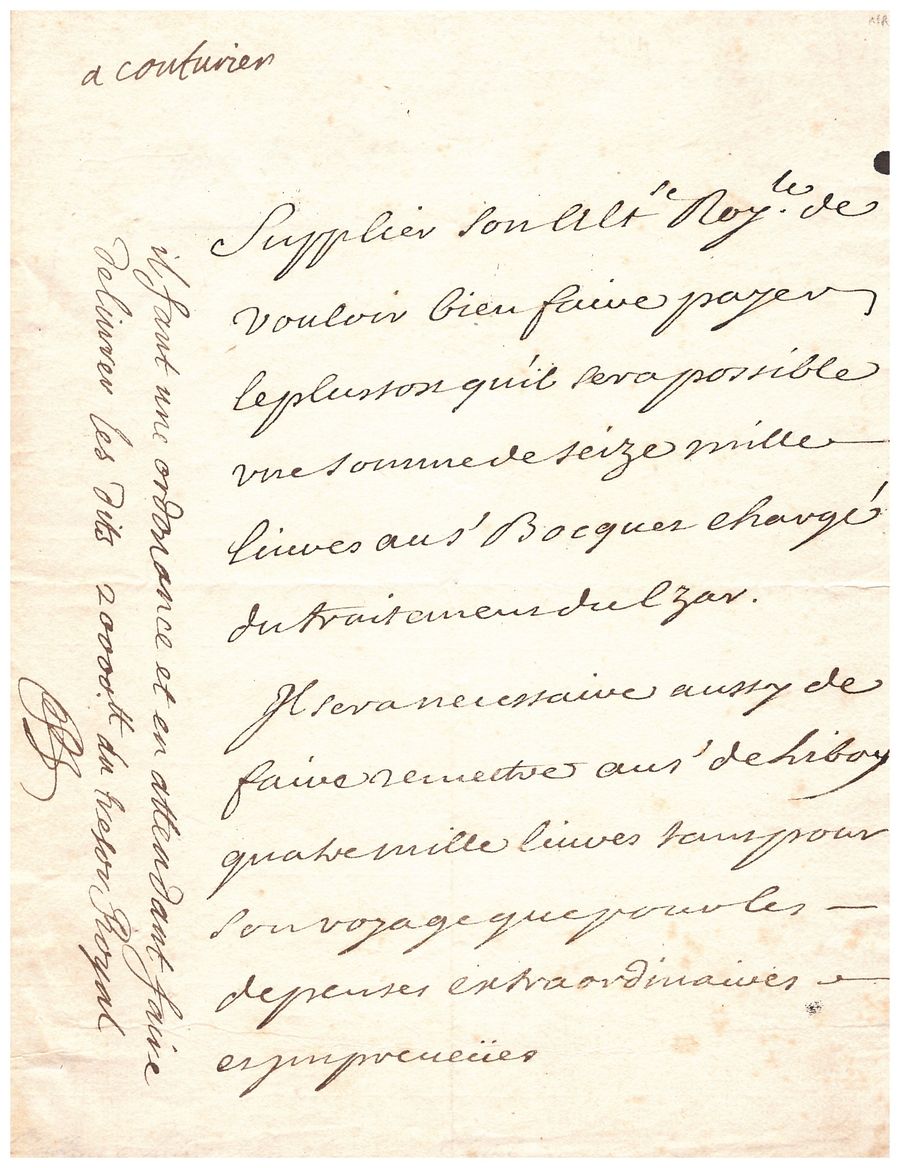 a couturier
Supplier son Alt.se Roy.le de
vouloir bien faire payer
le plustost qu'il sera possible
vne somme de seize mille
liures au s.r Bocquet chargé
du traitement du Czar.
Il sera necessaire aussy de
faire remettre au s.r de Liboy
quatre mille liures tant pour
son voyage que pour les
depenses extraordinaires
et impreueües
il faut une ordonance et en attendant faire
deliurer les dits 20000.lt du tresor Royal